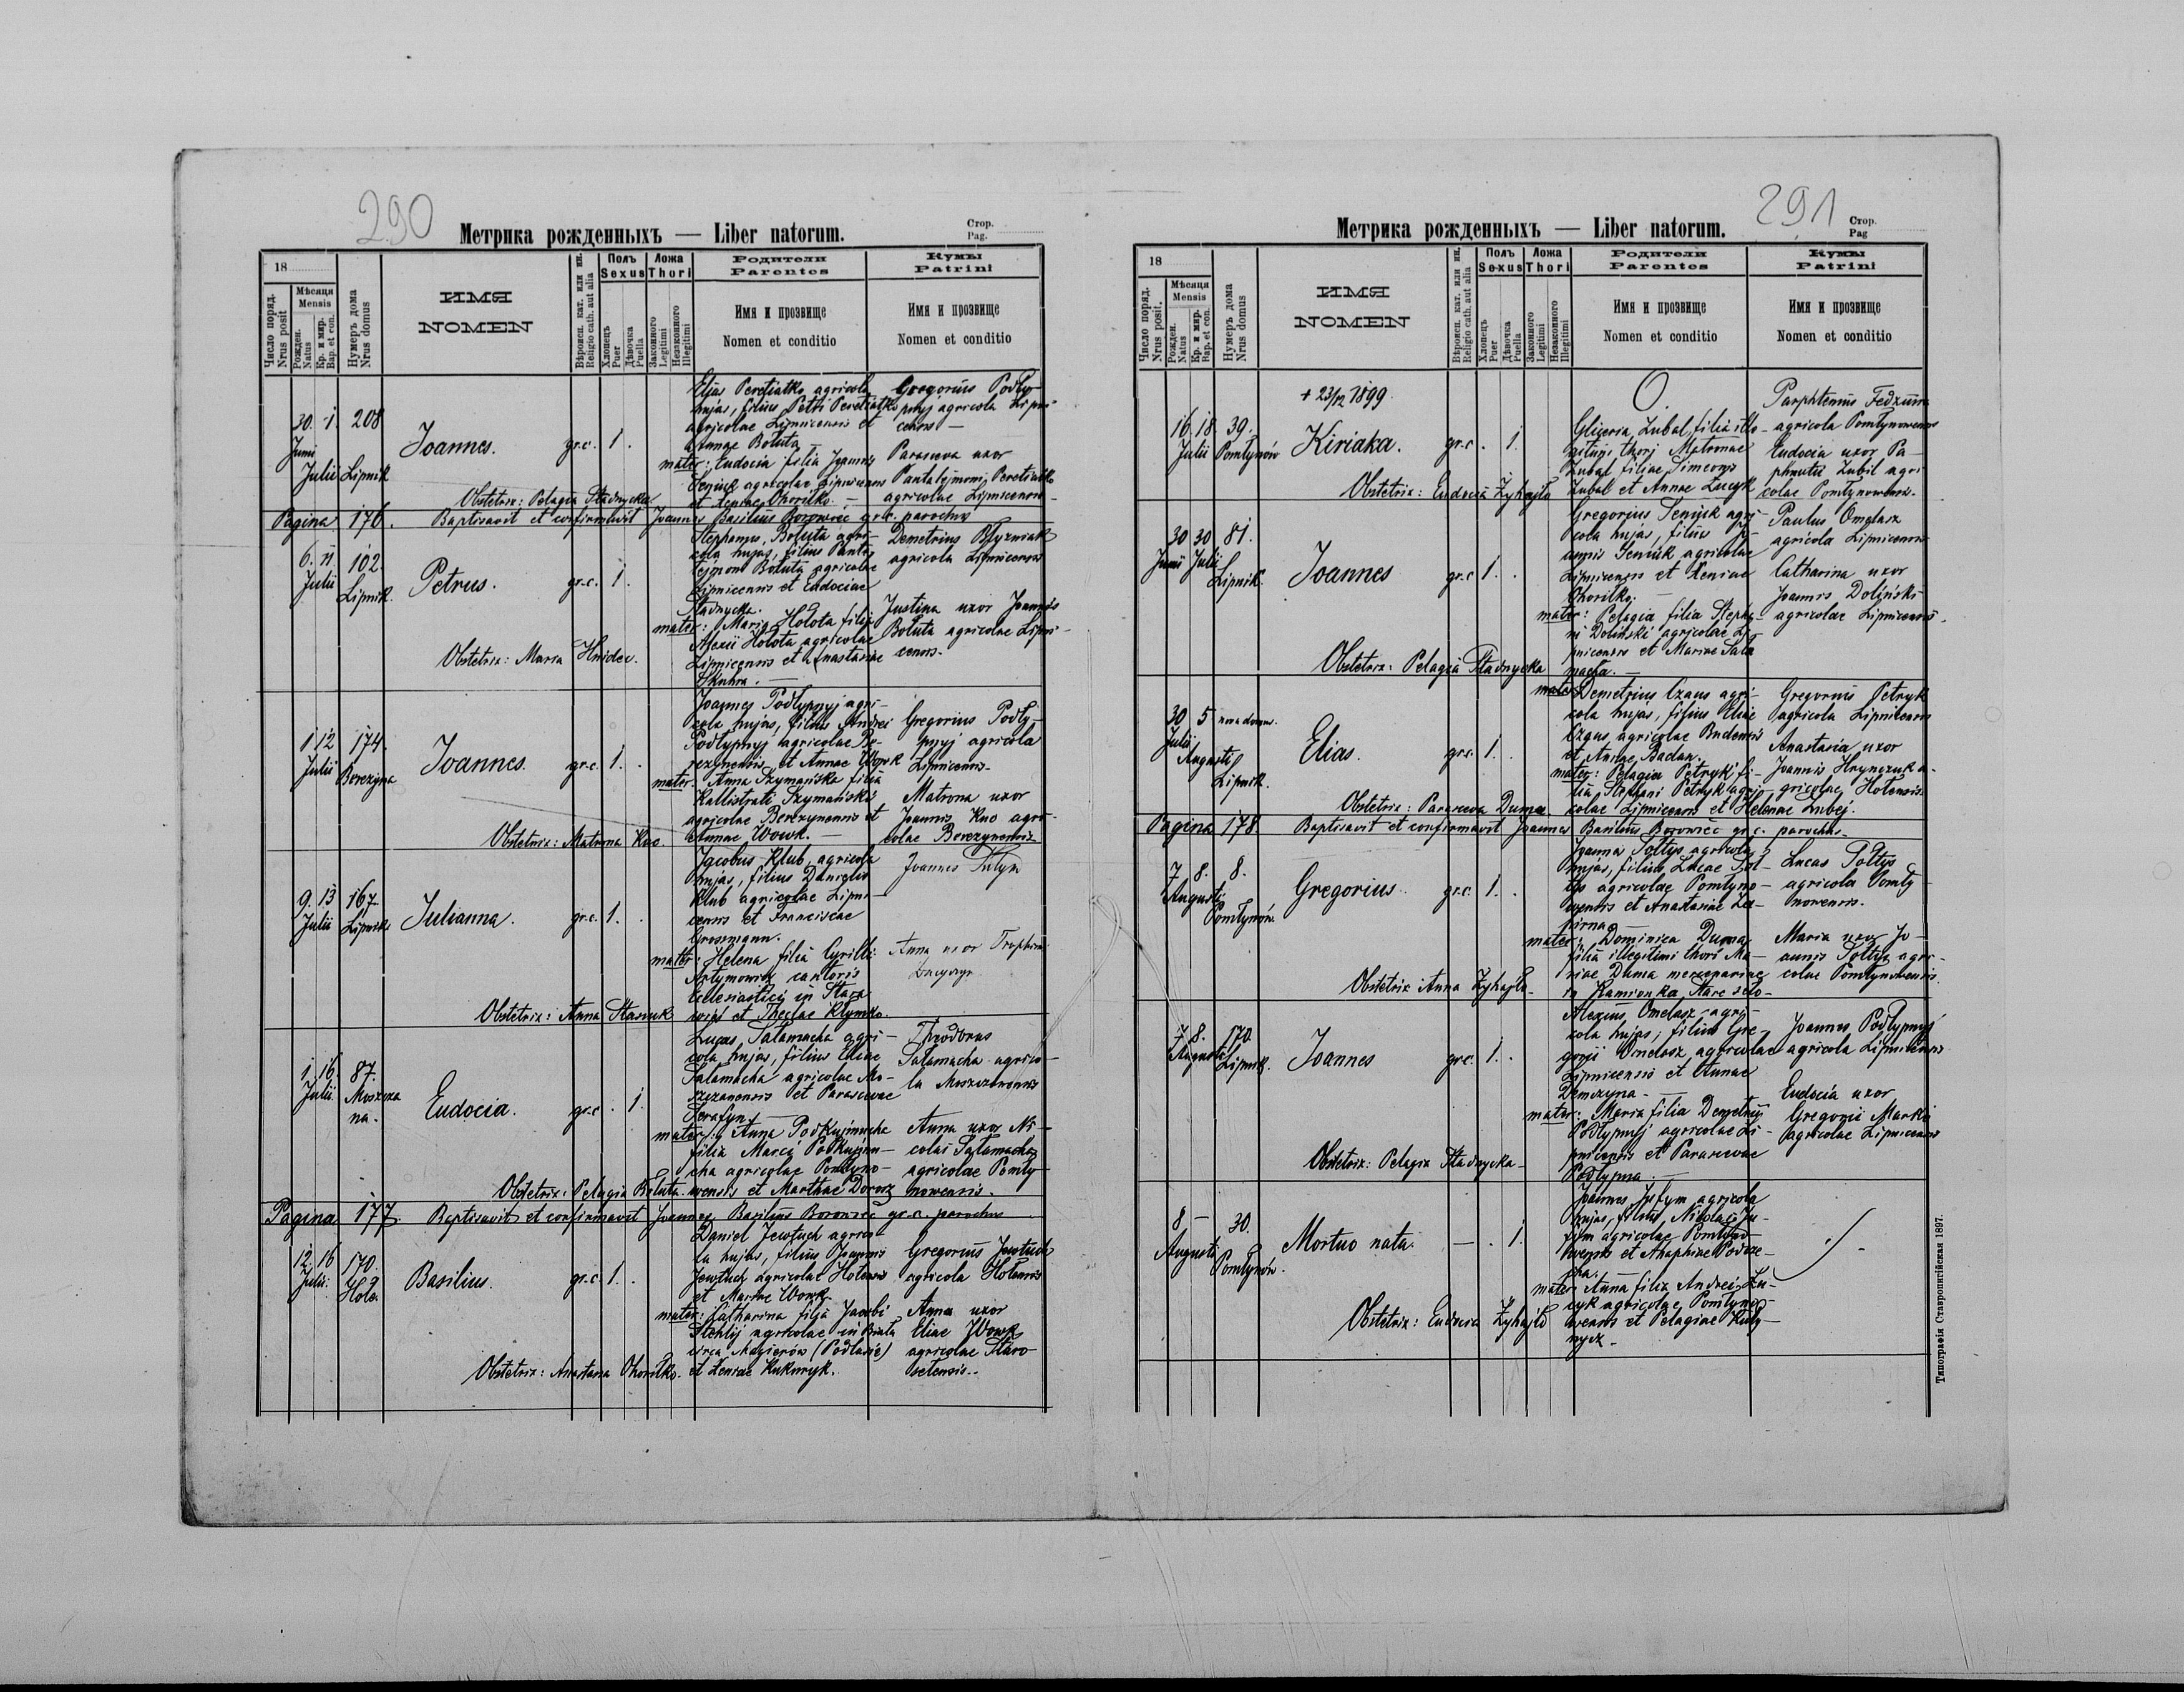 290
Метрика рожденныхъ — Liber natorum.
Стор.
Pag.
18
Число поряд.
Nrus posit
Мѣсяця
Mensis
Рожден.
Natus
Кр. и мир.
Bap. et con.
Нумеръ дома
Nrus domus
ИМЯ
NOMEN
Вѣроисп. кат. или ин.
Religio cath. aut alia
Полъ
Sexus
Хлопецъ
Puer
Дѣвочка
Puella
Ложа
Thori
Законного
Legitimi
Незаконного
Illegitimi
Родители
Parentes
Имя и прозвище
Nomen et conditio
Кумы
Patrini
Имя и прозвище
Nomen et conditio
30. 1. 208
Juni
Julii Lipnik
Joannes.
gr.c. 1.
Elias Peretiatko agricola
hujas, filius Petri Peretiatko
agricolae Lipnicensis et
Annae Boluta —
mater: Eudocia filia Joannis
Seniuk agricolae Lipnicensis
et Xeniae Chorilko. —
Gregorius Podły-
pnyj agricola Lipni-
censis —
Parasceva uxor
Pantalejmonij Peretiatko
agricolae Lipnicensis —
Obstetrix: Pelagia Stadnycka
Pagina 176. Baptisavit et confirmavit Joannes Basilius Borowiec gr.c. parochus
6. 11. 102.
Julii Lipnik.
Petrus.
gr.c. 1.
Stephanus Boluta agri-
cola hujas, filius Panta
lejmon Boluta agricolae
Lipnicensis et Eudociae
Stadnycka.
mater: Maria Holota filia
Alexii Holota agricolae
Lipnicensis et Anastasiae
Demetrius
agricola Lipnicensis
Justina uxor Joannis
Boluta agricolae Lipni-
censis.
Obstetrix: Maria Hnidec.
1. 12 174.
Julii Berezyna
Joannes.
gr.c. 1.
Joannes Podłypnyj agri-
cola hujas, filius Andrei
Podłypnyj agricolae Be-
rezynensis et Annae Wowk
mater: Anna Szymańska filia
Kallistrati Szymański
agricolae Berezynensis et
Annae Wowk. —
Gregorius Podły-
pnyj agricola
Lipnicensis —
Matrona uxor
Joannis Kuo agri-
colae Berezynensis
Obstetrix: Matrona Kuo
9. 13 167.
Julii Lipnik
Julianna.
gr.c. 1.
Jacobus Klub agricola
hujas, filius Danielis
Klub agricolae Lipni-
censis et Franciscae
Grosmann.
mater: Helena filia Cyrilli
Artymowicz cantoris
ecclesiastici in Stara
wieś et Theclae Klymko.
Joannes
Anna uxor Trophimi
Obstetrix: Anna Stasiuk
1. 16. 87.
Julii. Moszcza
na.
Eudocia.
gr.c. 1.
Lucas Salamacha agri-
cola hujas, filius Eliae
Salamacha agricolae Mo-
szczanensis et Parascevae
Serafyn. —
mater: Anna Podkujmucha
filia Marci Podkujmu-
cha agricolae Pomłyno-
wensis et Marthae Dorosz
Theodorus
Salamacha agrico-
la Moszczanensis
Anna uxor Ni-
colai Salamacha
agricolae Pomły-
nowensis.
Obstetrix: Pelagia Boluta.
Pagina 177. Baptisavit et confirmavit Joannes Basilius Borowiec gr.c. parochus
12. 16 170.
Julii. Hola.
Basilius.
gr.c. 1.
Daniel Jewtuch agrico-
la hujas, filius Joannis
Jewtuch agricolae Holensis
et Mariae Wowk.
mater: Catharina filia Jacobi
Stehlij agricolae in Biała
circa Magierów (Podlasie)
et Xeniae Kukuryk.
Gregorius Jewtuch
agricola Holensis
Anna uxor
Eliae Wowk
agricolae Staro-
setensis..
Obstetrix: Anastasia Chorilko.
291
Метрика рожденныхъ — Liber natorum.
Стор.
Pag
18
Число поряд.
Nrus posit.
Мѣсяця
Mensis
Рожден.
Natus
Кр. и мир.
Bap. et con.
Нумеръ дома
Nrus domus
ИМЯ
NOMEN
Вѣроисп. кат. или ин.
Religio cath. aut alia
Полъ
Sexus
Хлопецъ
Puer
Дѣвочка
Puella
Ложа
Thori
Законного
Legitimi
Незаконного
Illegitimi
Родители
Parentes
Имя и прозвище
Nomen et conditio
Кумы
Patrini
Имя и прозвище
Nomen et conditio
+ 23/12 1899.
16. 18. 39.
Julii Pomłynów
Kiriaka.
gr.c. 1.
O.
Gliceria Zubal, filia ille-
gitimi thori Matronae
Zubal filiae Simeonis
Zubal et Annae Łucyk
Parphtenius
agricola Pomłynowensis
Eudocia uxor Pa-
phnutii Zubil agri
colae Pomłynowensis.
Obstetrix: Eudocia Zyhajło
30 30 81.
Junii Julii Lipnik.
Joannes
gr.c. 1.
Gregorius Seniuk agri-
cola hujas, filius Jo-
annis Seniuk agricolae
Lipnicensis et Xeniae
Chorilko. —
mater: Pelagia filia Stepha-
ni Doliński agricolae Li-
pnicensis et Mariae Sala
macha. —
Paulus Omelasz
agricola Lipnicensis
Catharina uxor
Joannis Doliński
agricolae Lipnicensis.
Obstetrix: Pelagia Stadnycka
30 5 nova domus.
Julii Augusti Lipnik.
Elias.
gr.c. 1.
Demetrius Czaus agri-
cola hujas, filius Eliae
Czaus agricolae Budensis
et Annae Badan.
mater: Pelagia Petryk fi-
lia Stephani Petryk agri-
colae Lipnicensis et Helenae Lubej.
Gregorius Petryk
agricola Lipnicensis
Anastasia uxor
Joannis Hrynczuk a-
gricolae Holensis.
Obstetrix: Parasceva Duma.
Pagina 178. Baptisavit et confirmavit Joannes Basilius Borowiec gr.c. parochus.
7. 8. 8.
Augusti Pomłynów.
Gregorius.
gr.c. 1.
Joannes Sołtys agricola
hujas, filius Lucae Soł-
tys agricolae Pomłyno-
wensis et Anastasiae
mater: Dominica Duma
filia illegitimi thori Ma-
riae Duma mercenariae
in Kamionka Stare seło —
Lucas Sołtys
agricola Pomły
nowensis.
Maria uxor Jo-
annis Sołtys agri-
colae Pomłynowensis.
Obstetrix Anna Zyhajło.
7. 8. 170.
Augusti Lipnik.
Joannes
gr.c. 1.
Alexius Omelasz agri-
cola hujas, filius Gre-
gorii Omelasz agricolae
Lipnicensis et Annae
Demczyna. —
mater: Maria filia Demetrii
Podłypnyj agricolae Li-
pnicensis et Parascevae
Podłypna. —
Joannes Podłypnyj
agricola Lipnicensis
Eudocia uxor
Gregorii Markiw
agricolae Lipnicensis
Obstetrix: Pelagia Stadnycka —
8 — 30.
Augusti Pomłynów.
Mortuo nata.
— . 1.
Joannes Jufym agricola
hujas, filius Nicolai Ju-
fym agricolae Pomłyno
wensis et Ahaphiae
mater Anna filia Andrei Łu-
cyk agricolae Pomłyno-
wensis et Pelagiae Kuły-
nycz —
./.
Obstetrix: Eudocia Zyhajło
Типографія Ставропигійская 1897.